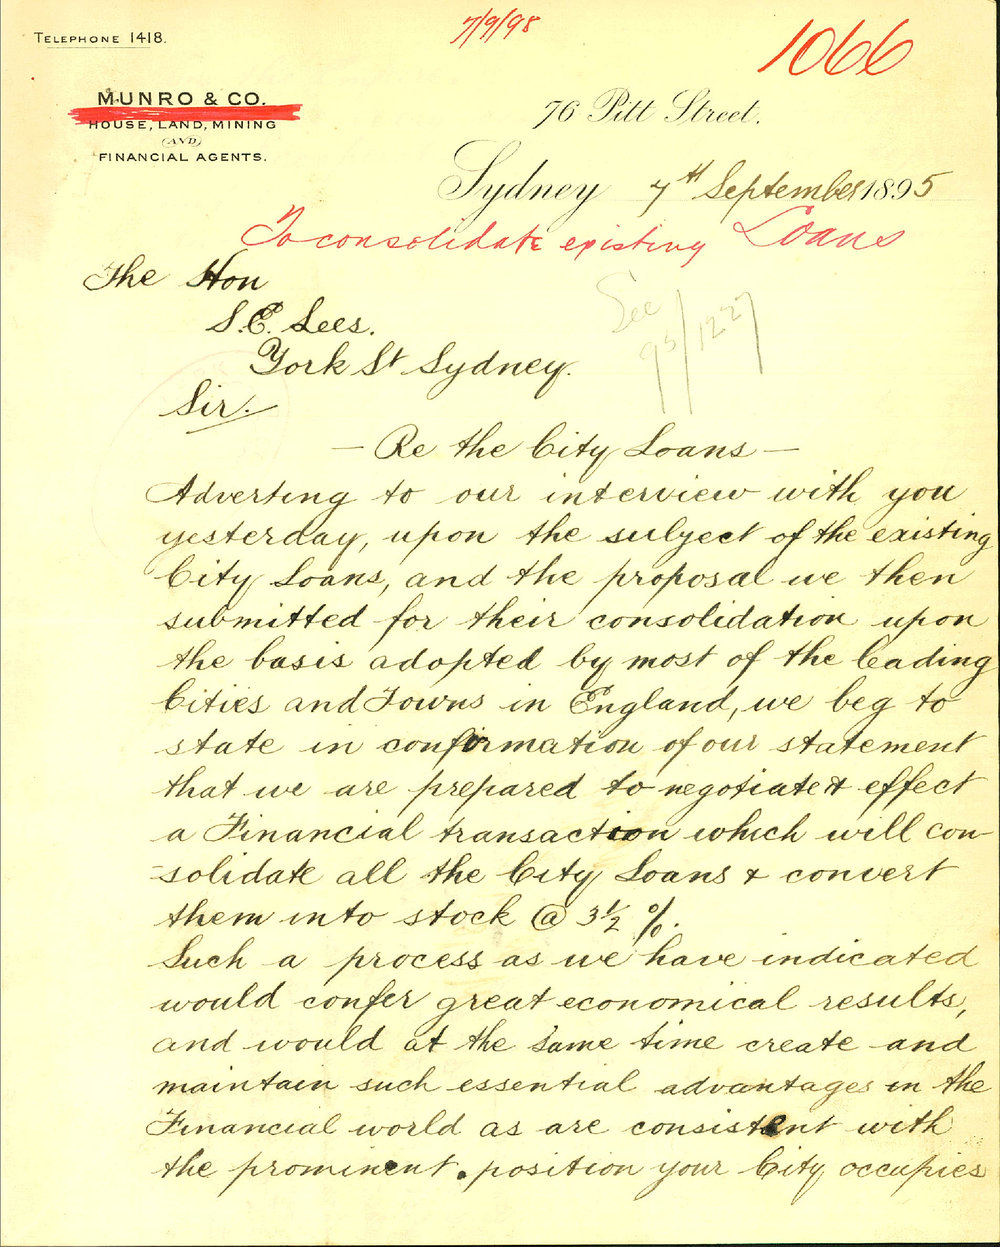 TELEPHONE 1418.
7/9/95
1066
MUNRO & CO.
HOUSE, LAND, MINING
AND
FINANCIAL AGENTS.
76 Pitt Street.
Sydney 7th September 1895
To consolidate existing Loans
The Hon
S. E. Lees.
York St Sydney.
See
95/1227
Sir.
— Re the City Loans —
Adverting to our interview with you
yesterday, upon the subject of the existing
City Loans, and the proposal we then
submitted for their consolidation upon
the basis adopted by most of the leading
Cities and Towns in England, we beg to
state in confirmation of our statement
that we are prepared to negotiate & effect
a Financial transaction which will con-
-solidate all the City Loans & convert
them into stock @ 3½ %.
Such a process as we have indicated
would confer great economical results,
and would at the same time create and
maintain such essential advantages in the
Financial world as are consistent with
the prominent position your City occupies